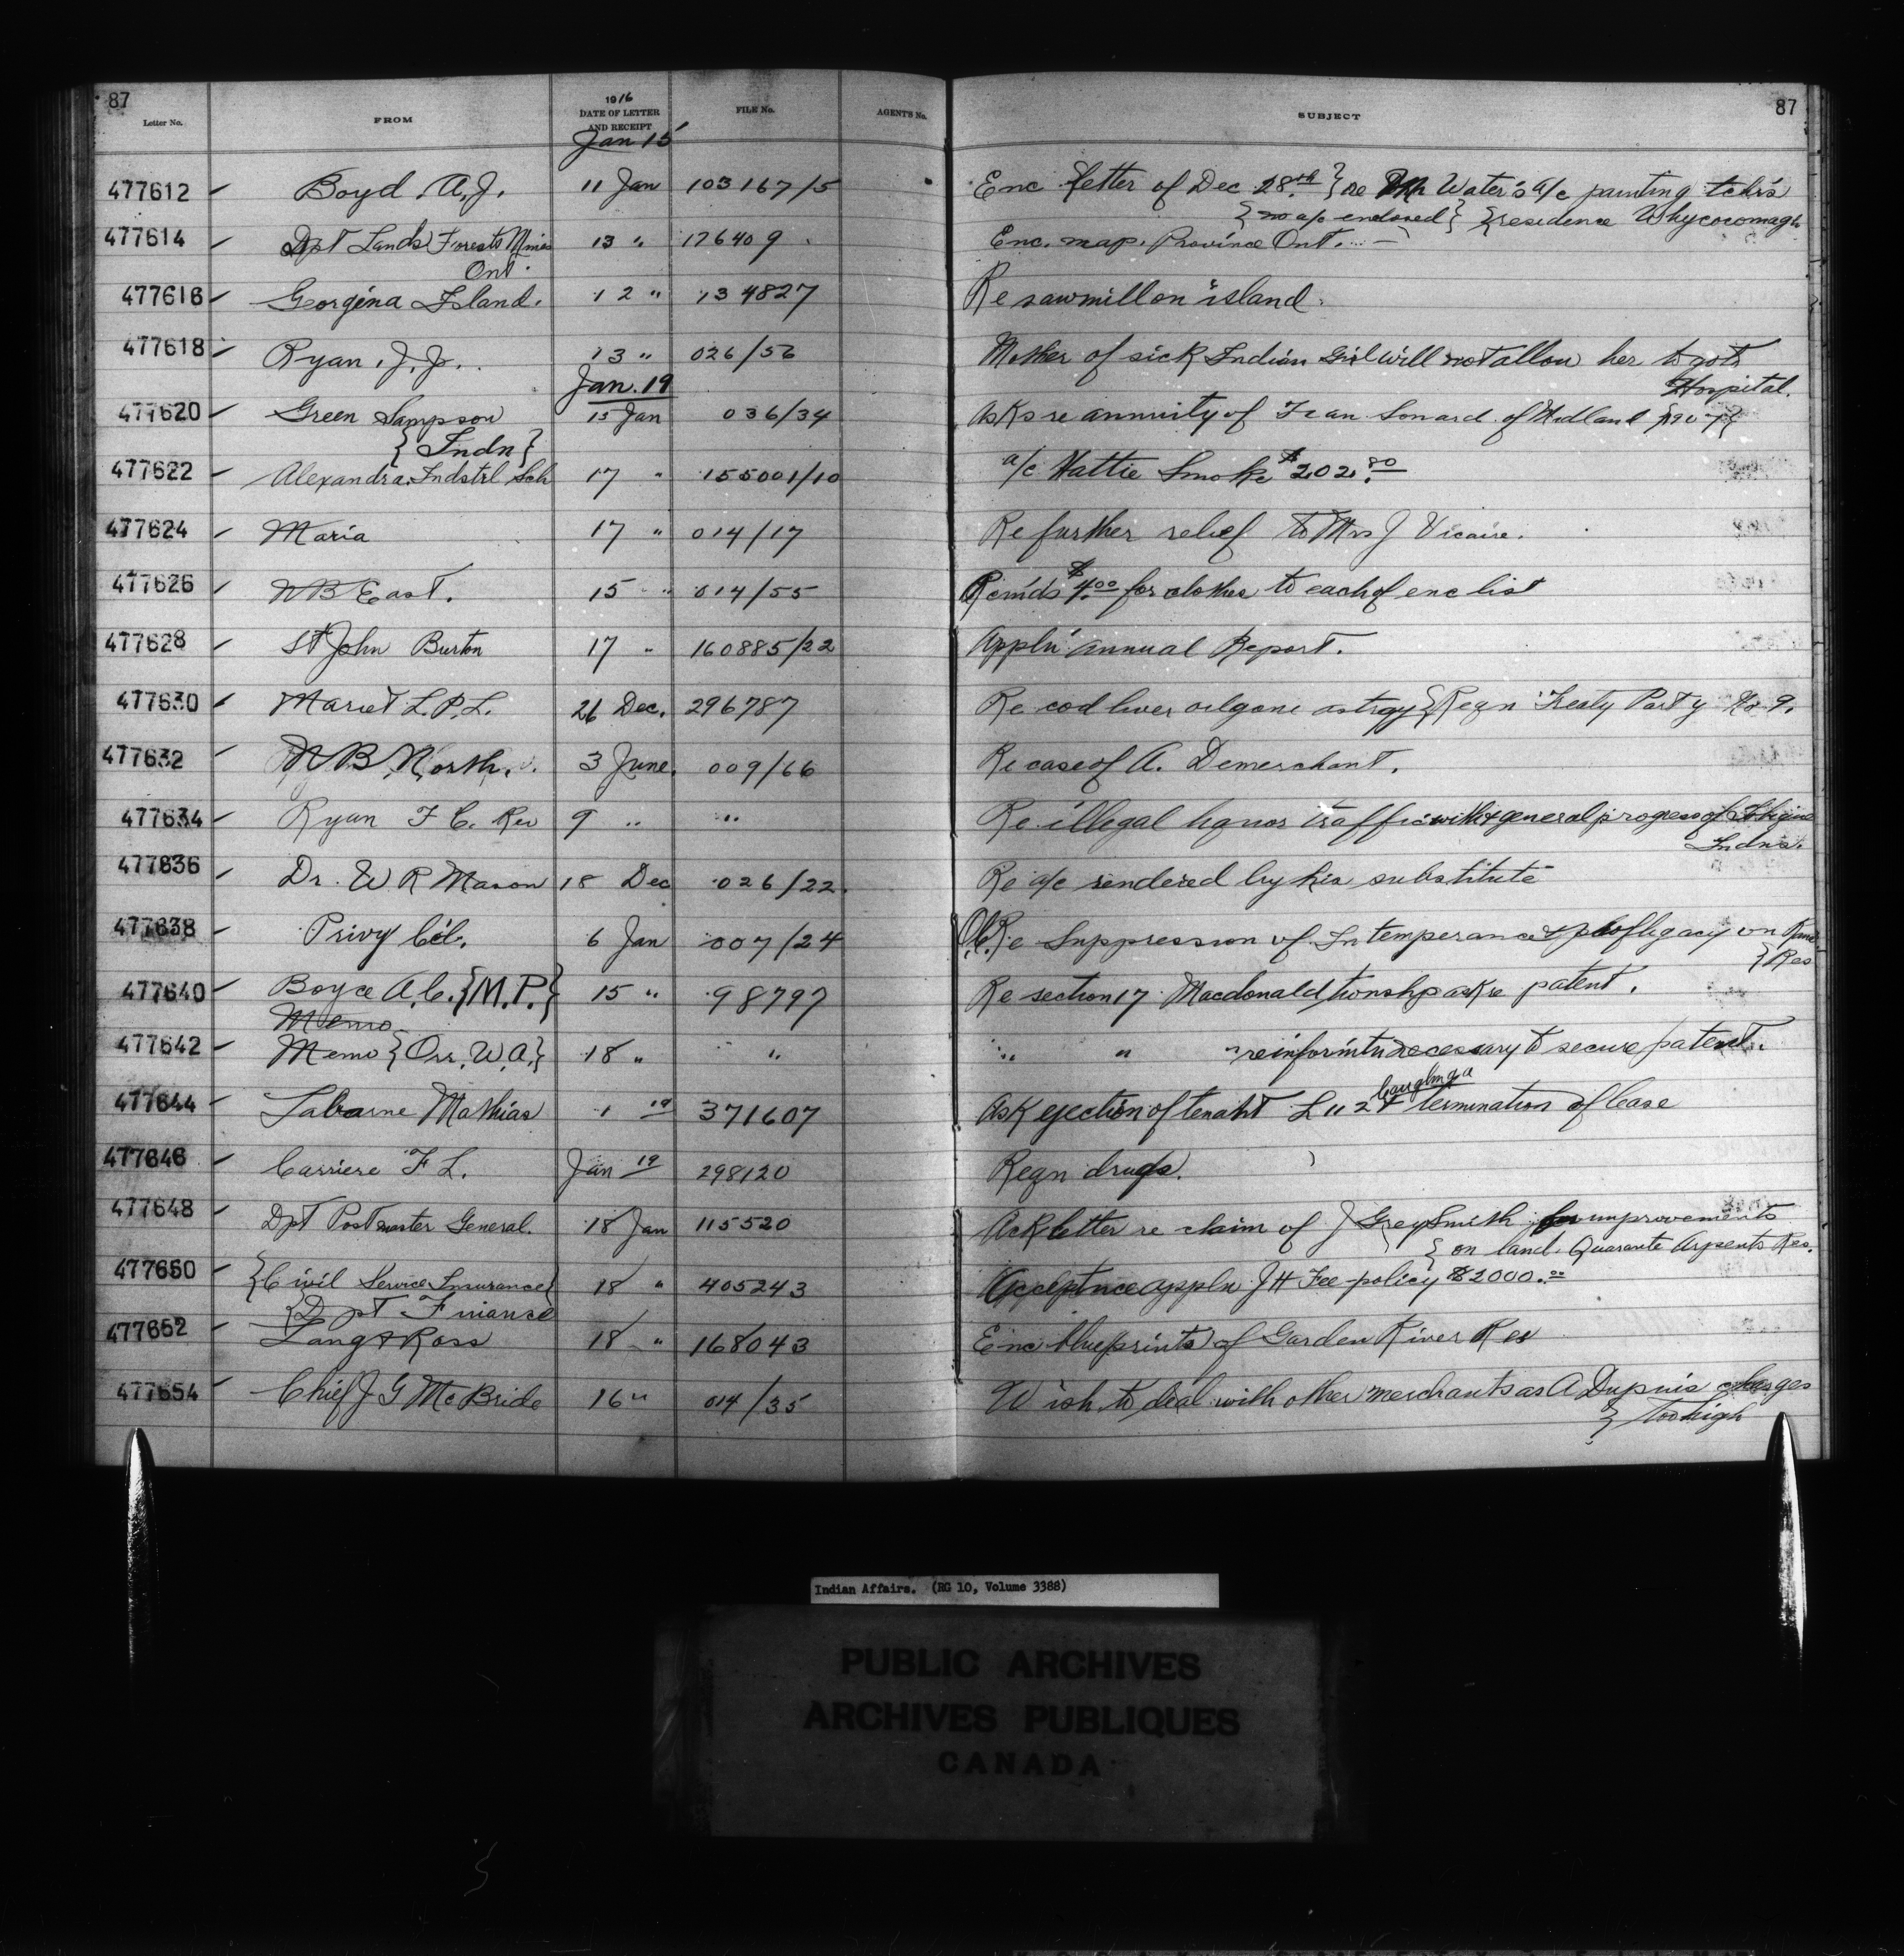 87
87
Letter No.
FROM
1916
DATE OF LETTER
AND RECEIPT
FILE No.
AGENT'S No.
SUBJECT
Jan 15
477612 Boyd A.J. 11 Jan 103167/5 Enc letter of Dec 28th } re Mr Water's a/c painting tchr's
{no a/c enclosed} {residence Whycocomagh
477614 Dpt Lands Forests Mines 13 " 176409 Enc. map. Province Ont.
Ont.
477616 Georgina Island. 12 " 134827 Re sawmill on island.
477618 Ryan, J.J. 13 " 026/56 Mother of sick Indian Girl will not allow her to go to
Hospital.
Jan. 19
477620 Green Sampson 15 Jan 036/34 Asks re annuity of of Midland
{Indn}
477622 Alexandra Indstrl Sch 17 " 155001/10 a/c Hattie Smoke $202.80
477624 Maria 17 " 014/17 Re further relief to Mrs J Vicaire.
477626 NB East. 15 " 014/55 Rcmds $4.00 for clothes to each of enc list
477628 St John Burton 17 " 160885/22 Appln annual Report.
477630 L.P.L. 26 Dec. 296787 Re cod liver oil gone {Reqn Treaty Party No 9.
477632 NB North. 3 June. 009/66 Re case of A. Demerchant.
477634 Ryan F C. Rev 9 " " Re illegal liquor traffic with & general progress of
Indns.
477636 Dr. W R Mason 18 Dec 026/22. Re a/c rendered by his substitute
477638 Privy Ccl. 6 Jan 007/24 O.C. Re Suppression of Intemperance & profligacy on
{Res
477640 Boyce A.C. {M.P.} 15 " 98797 Re section 17 Macdonald townshp ask re patent.
Memo
477642 Memo {Orr, W.A.} 18 " " " " " re informtn necessary to secure patent.
477644 Mathias 1 19 371607 Ask ejection of tenant L 11 2 & termination of lease
Caughnga
477646 Carriere F L. Jan 19 298120 Reqn drugs.
477648 Dpt Postmaster General. 18 Jan 115520 Ack letter re claim of J Grey Smith for improvements
{on land. Quarante Arpents Res.
477650 {Civil Service Insurance} 18 " 405243 Acceptnce appln J H Fee policy $2000.00
{Dpt Finance
477652 Lang & Ross 18 " 168043 Enc blueprints of Garden River Res
477654 Chief J G McBride 16 " 014/35 Wish to deal with other merchants as A Dupuis charges
} too high
Indian Affairs. (RG 10, Volume 3388)
PUBLIC ARCHIVES
ARCHIVES PUBLIQUES
CANADA